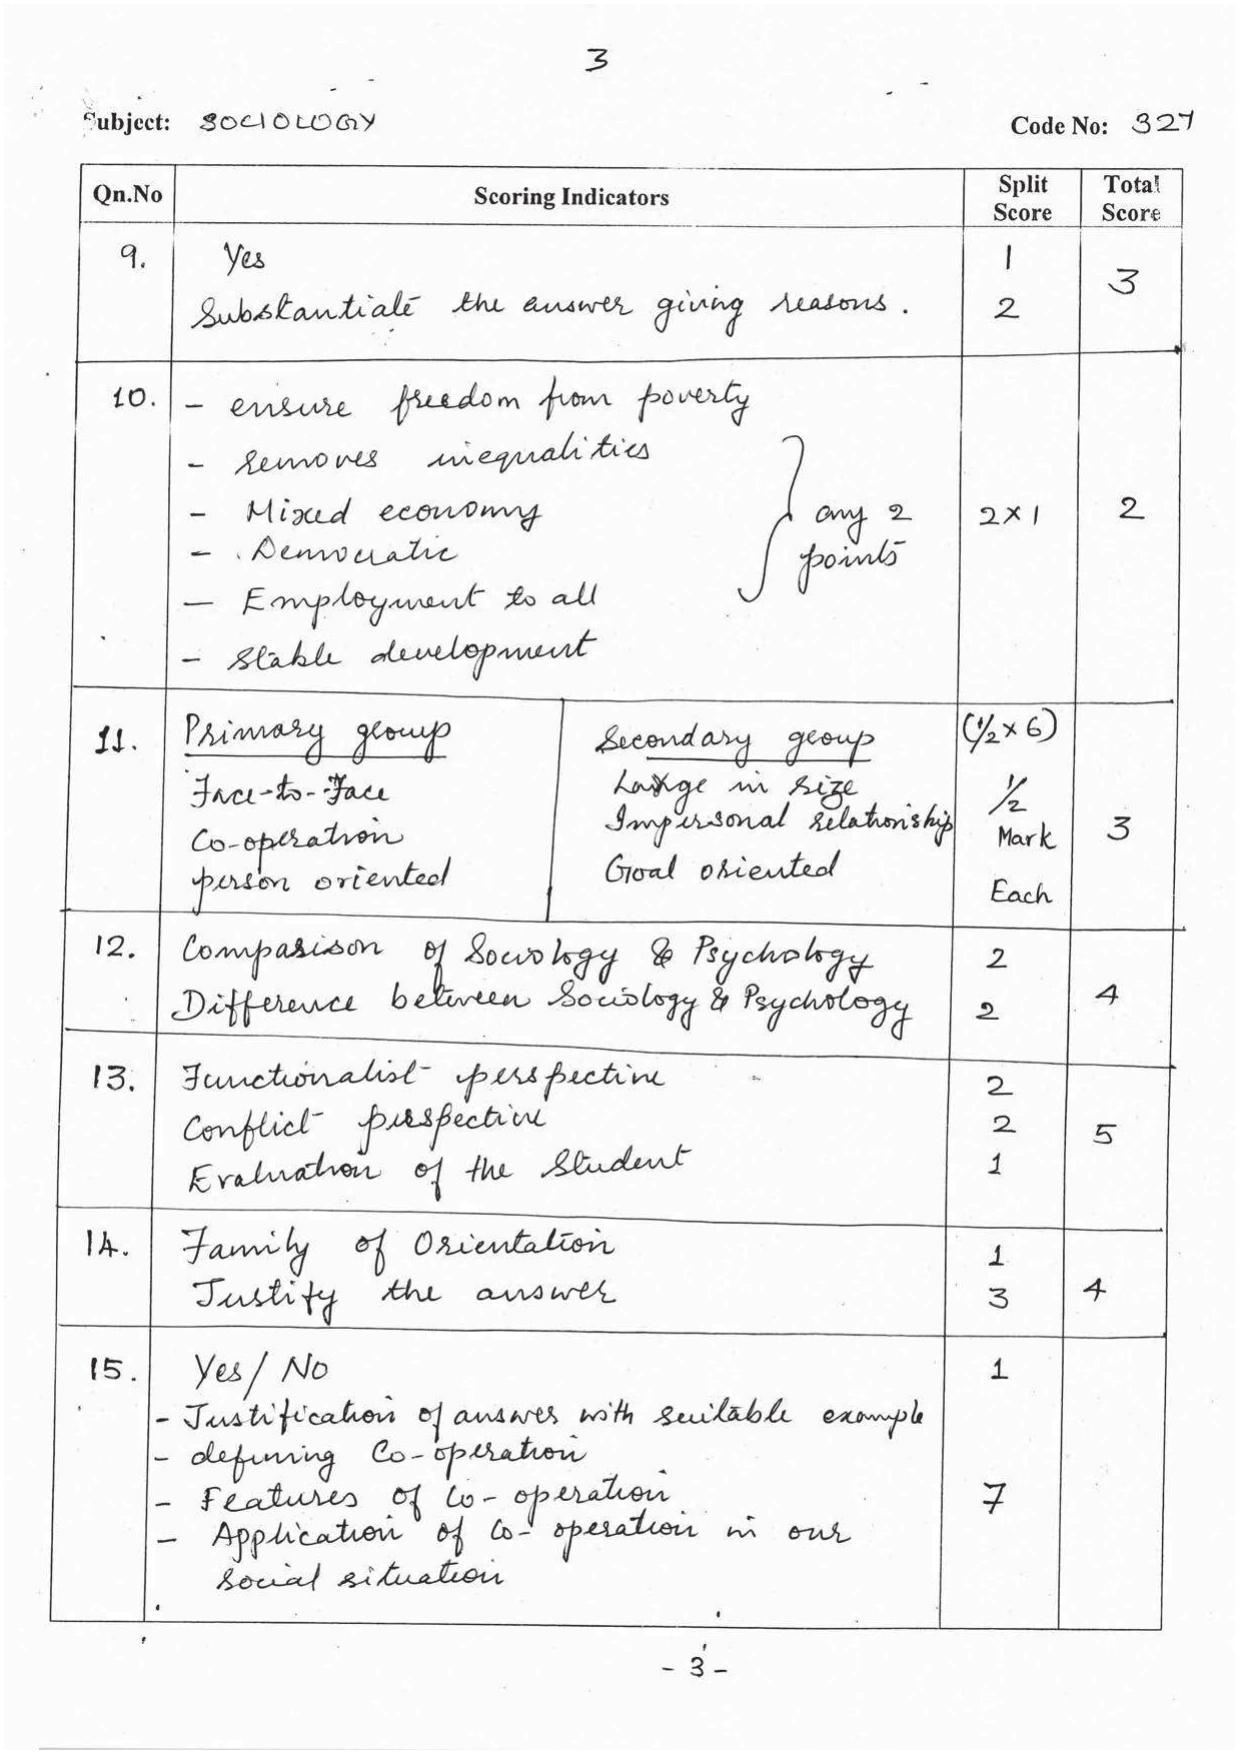 3
Subject: SOCIOLOGY Code No: 327
Qn.No Scoring Indicators Split Score Total Score
9. Yes 1
Substantiate the answer giving reasons. 2 3
10. - ensure freedom from poverty
- removes inequalities
- Mixed economy any 2 2x1 2
- Democratic points
- Employment to all
- Stable development
11. Primary group Secondary group (1/2 x 6)
Face-to-Face Large in size 1/2
Co-operation Impersonal relationship Mark 3
person oriented Goal oriented Each
12. Comparison of Sociology & Psychology 2
Difference between Sociology & Psychology 2 4
13. Functionalist perspective 2
Conflict perspective 2 5
Evaluation of the Student 1
14. Family of Orientation 1
Justify the answer 3 4
15. Yes/ No 1
- Justification of answer with suitable example
- defining Co-operation
- Features of Co-operation 7
- Application of Co-operation in our
social situation
- 3 -